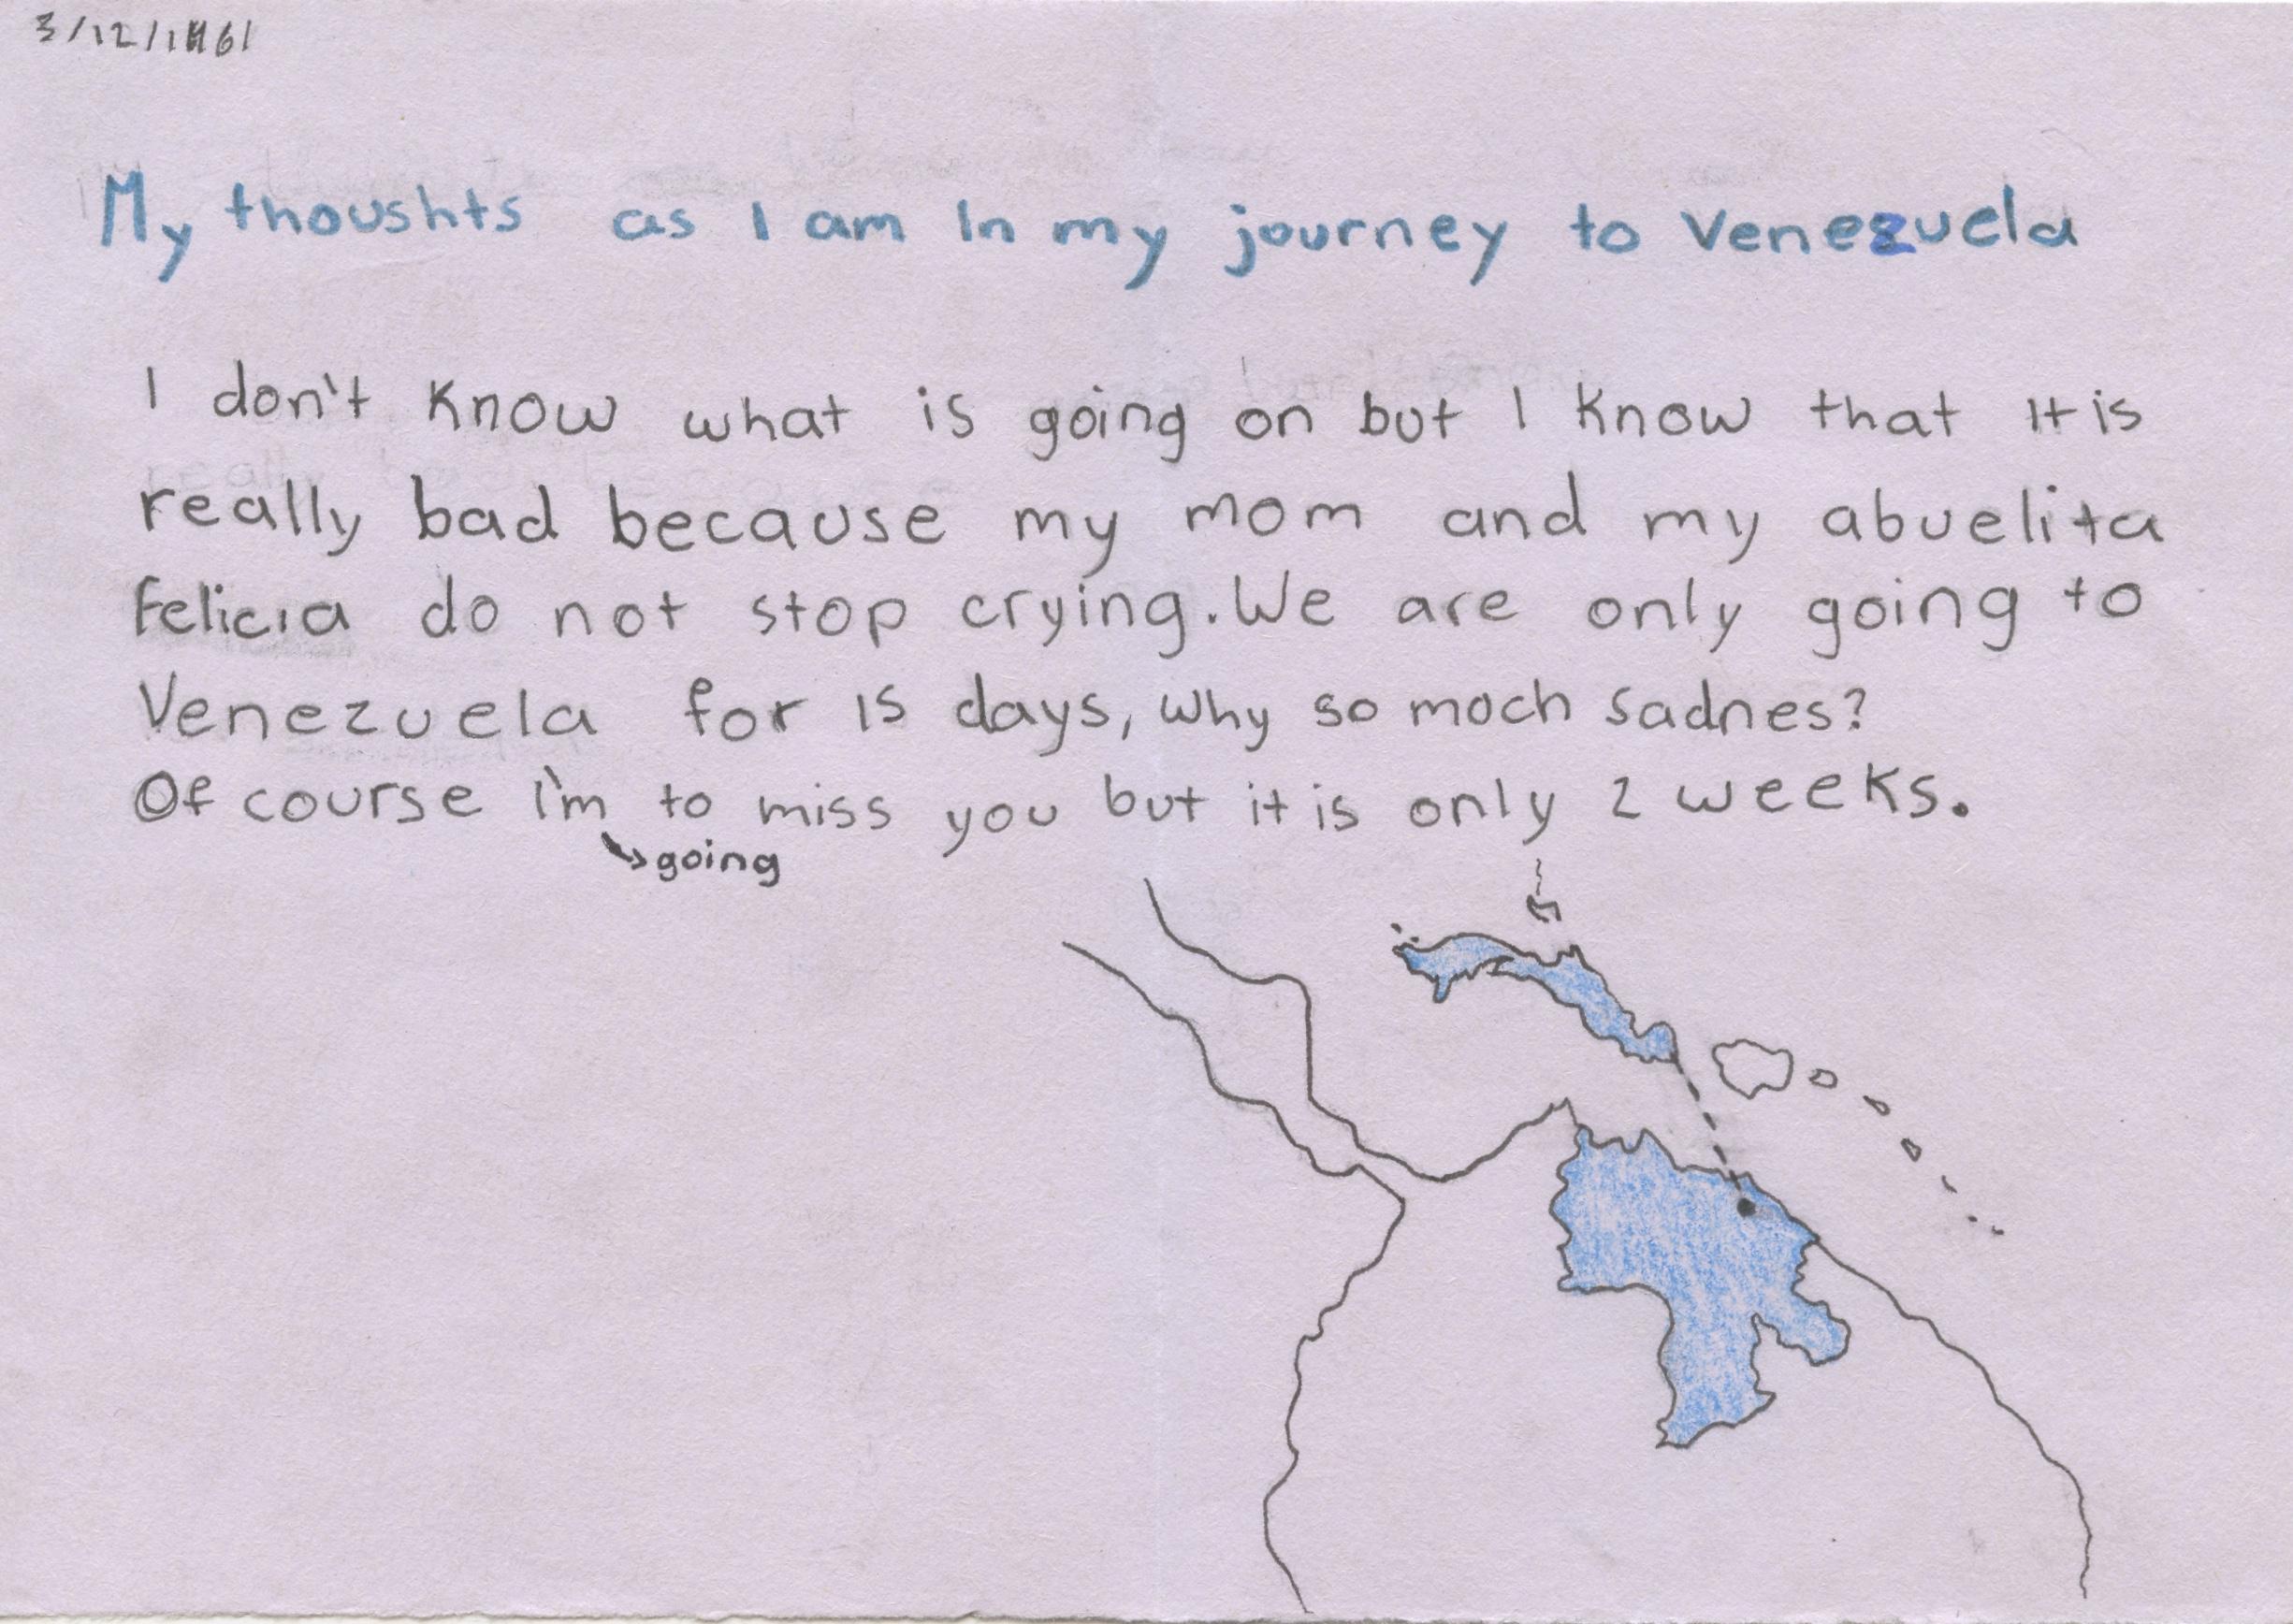 3/12/1961
My thoushts as I am In my journey to Venezuela
I don't know what is going on but I know that It is
really bad because my mom and my abuelita
felicia do not stop crying. We are only going to
Venezuela for 15 days, why so moch sadnes?
Of course I'm to miss you but it is only 2 weeks.
going